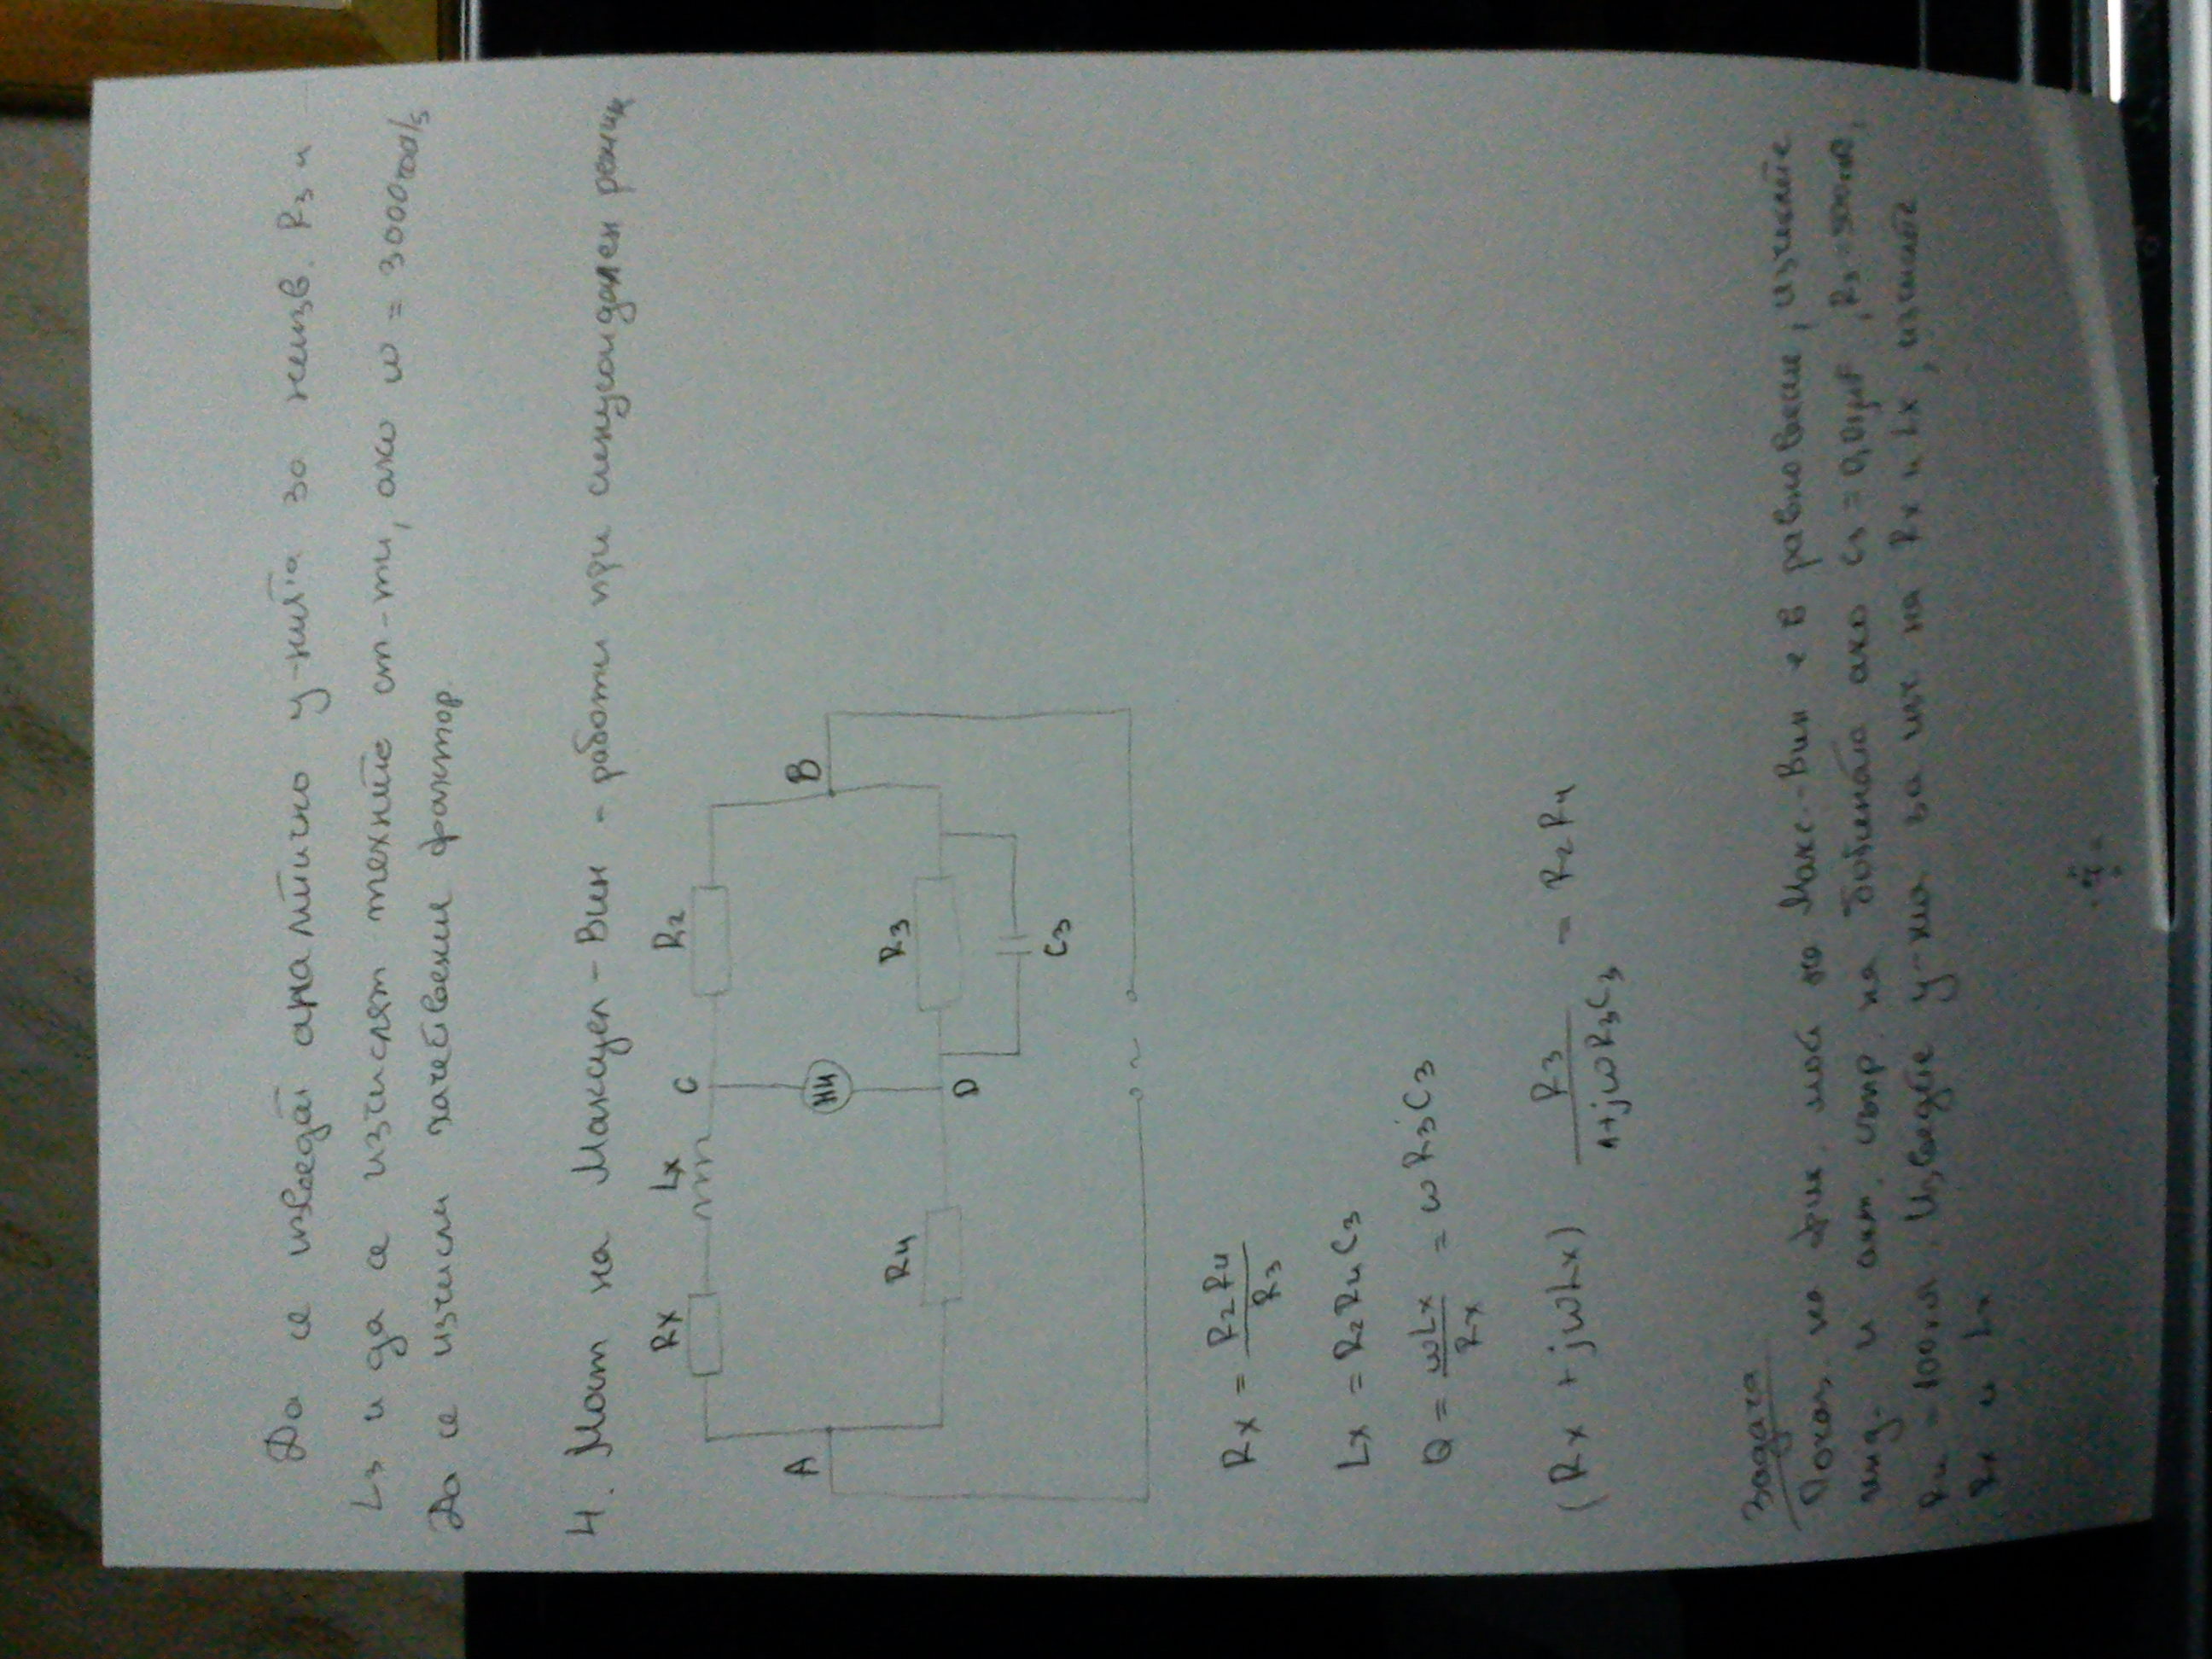 Да се изведат аналитично у-нията за неизв. R3 и
L3 и да се изчислят техните ст-ти, ако ω = 3000 rad/s
Да се изчисли качествения фактор.
4. Мост на Максуел-Вин - работи при синусоидален режим
Rx Lx C R2
A НИ B
R4 D R3
C3
~
Rx = R2R4/R3
Lx = R2R4C3
Q = ωLx/Rx = ωR3C3
(Rx + jωLx) R3/(1+jωR3C3) = R2R4
Задача
Показ. на фиг. мост на Макс-Вин е в равновесие, изчислете
инд. и акт. съпр. на бобината ако C3 = 0,01μF, R3 =
R4 = . Изведете у-ния за изч на Rx и Lx, изчислете
Rx и Lx